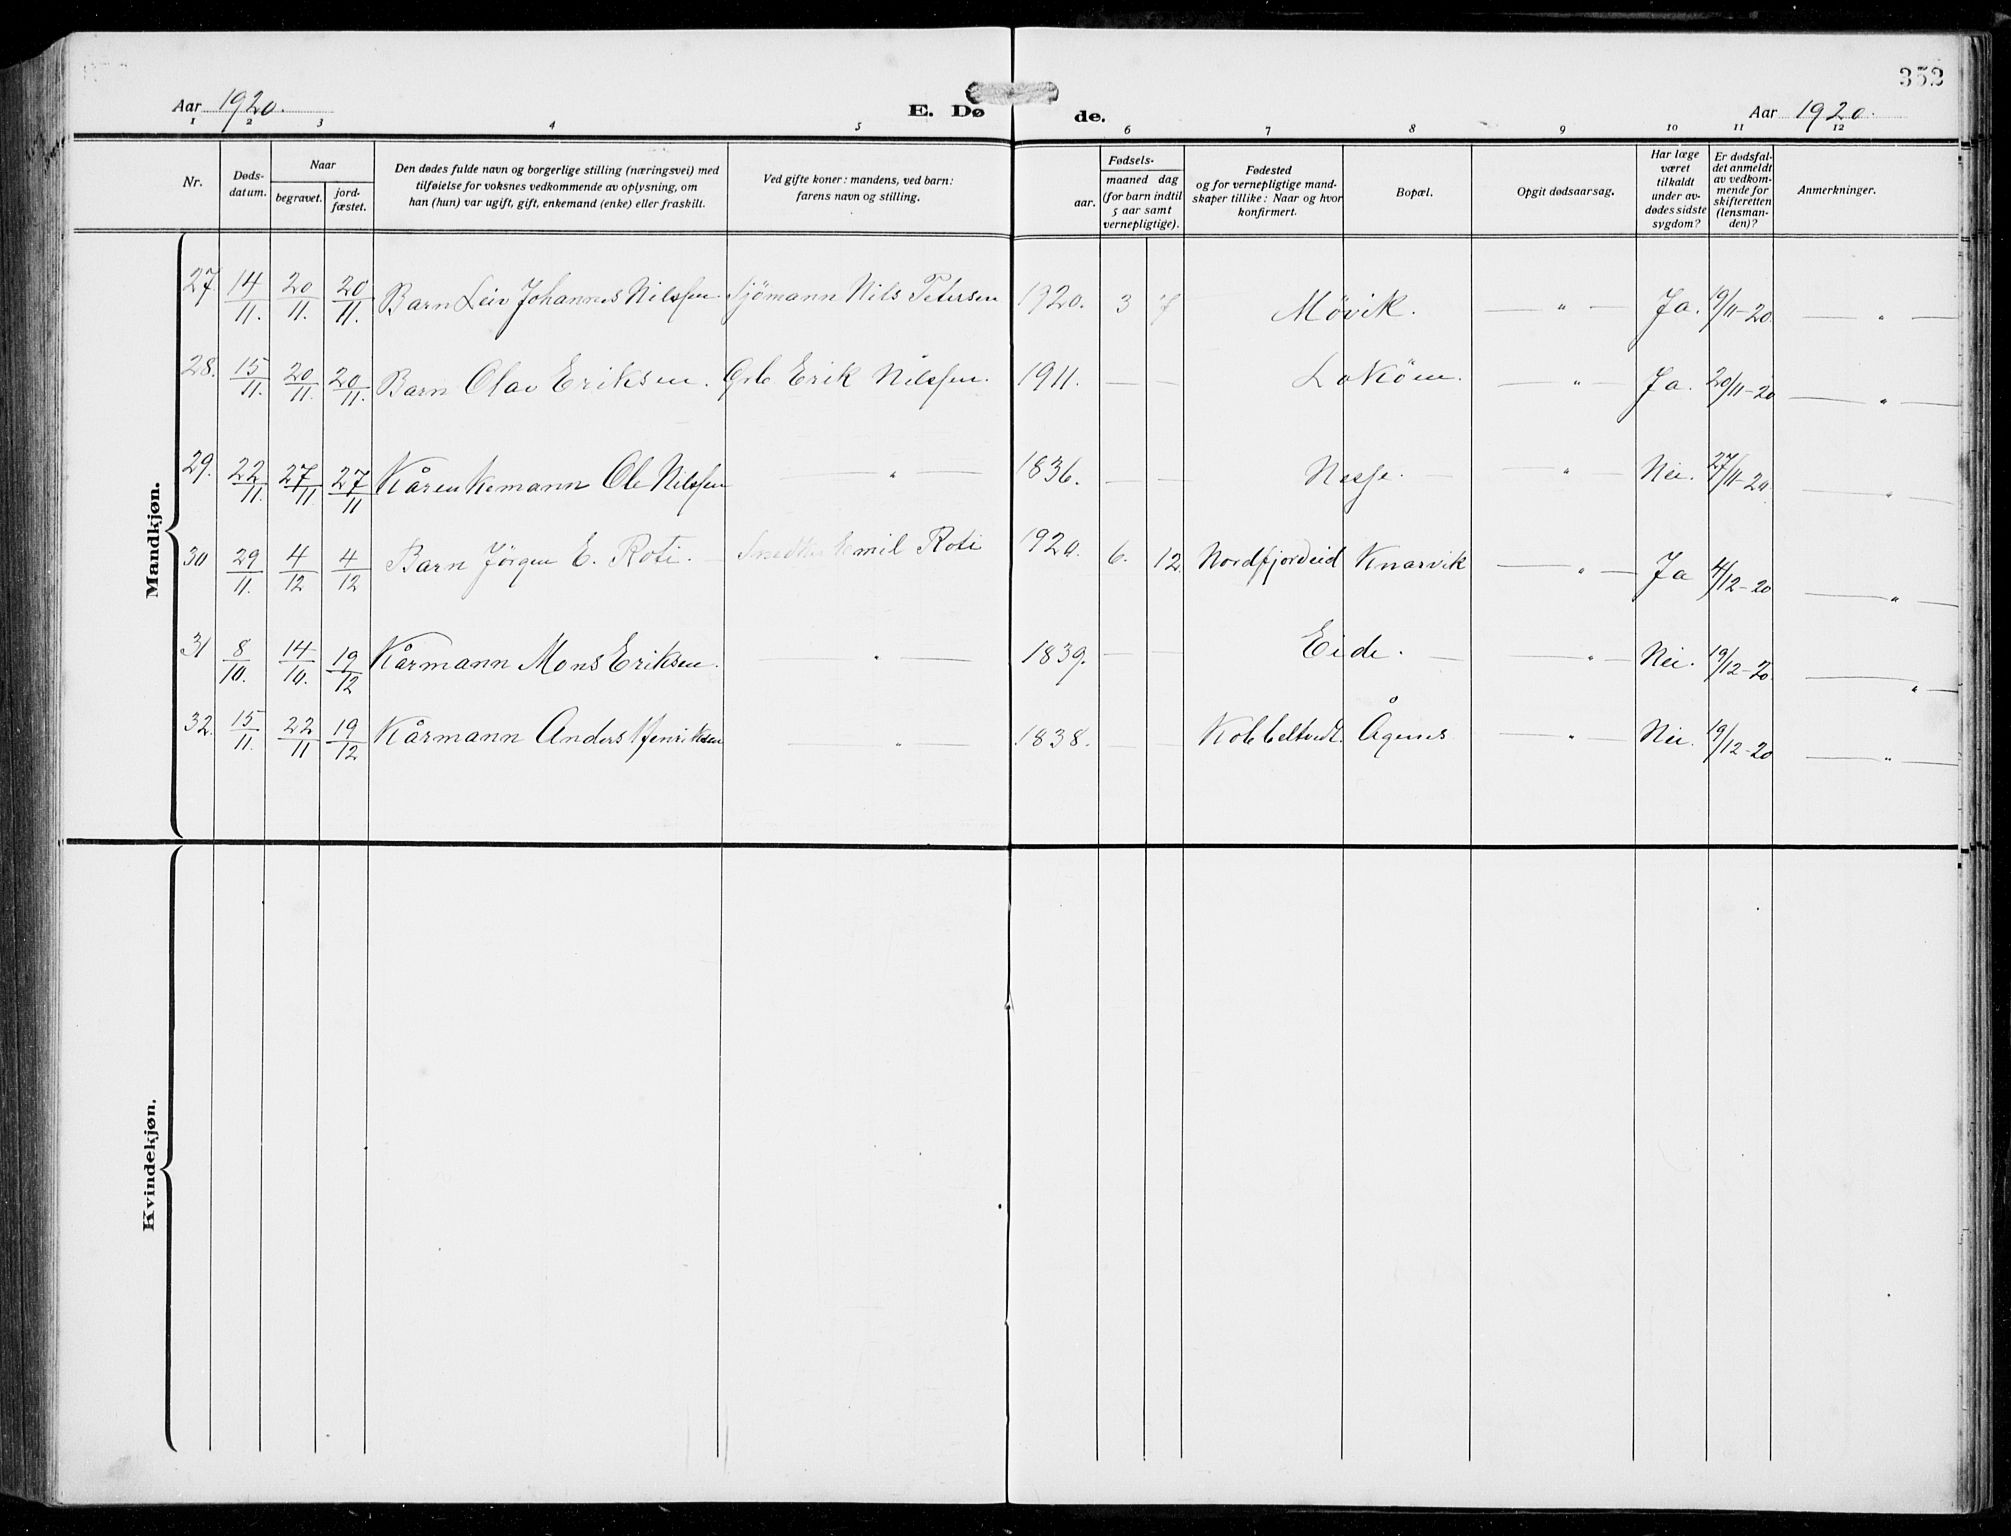 352
Aar 1920. E. Dø de. Aar 1920.
1 2 3 4 5 6 7 8 9 10 11 12
Nr. Døds-datum. Naar begravet. jord-fæstet. Den dødes fulde navn og borgerlige stilling (næringsvei) med tilføielse for voksnes vedkommende av oplysning, om han (hun) var ugift, gift, enkemand (enke) eller fraskilt. Ved gifte koner: mandens, ved barn: farens navn og stilling. Fødsels- aar. maaned dag (for barn indtil 5 aar samt vernepligtige). Fødested og for vernepligtige mand-skaper tillike: Naar og hvor konfirmert. Bopæl. Opgit dødsaarsag. Har læge været tilkaldt under av-dødes sidste sygdom? Er dødsfal-det anmeldt av vedkom-mende for skifteretten (lensman-den)? Anmerkninger.
Mandkjøn.
27. 14/11. 20/11. 20/11. Barn Leiv Johannes Nilssen Sjömann Nils Petersen 1920. 3 Møvik. — " — Ja. 19/11-20. — " —
28. 15/11. 20/11. 20/11. Barn Olav Eriksen. Grb Erik Nilssen. 1911. — — Lokøen. — " — Ja. 20/11-20 — " —
29. 22/11. 27/11 27/11 Kårenkemann Ole Nilssen — " — 1836. — — Nesse. — — " — Nei. 27/11-20. — " —
30 29/11. 4/12 4/12 Barn Jörgen E. Roti. — Snedker Emil Roti 1920. 6. 12. Nordfjordeid Knarvik — " — Ja 4/12-20 — " —
31 8/10. 14/10. 19/12 Kårmann Mons Eriksen. — " — 1839. — — Eide. — — " — Nei. 19/12-20. — " —
32. 15/11. 22/11 19/12 Kårmann Anders Henriksen — " — 1838. — — Kobbeltvedt. Ågenes — " — Nei. 19/12-20 — " —
Kvindekjøn.